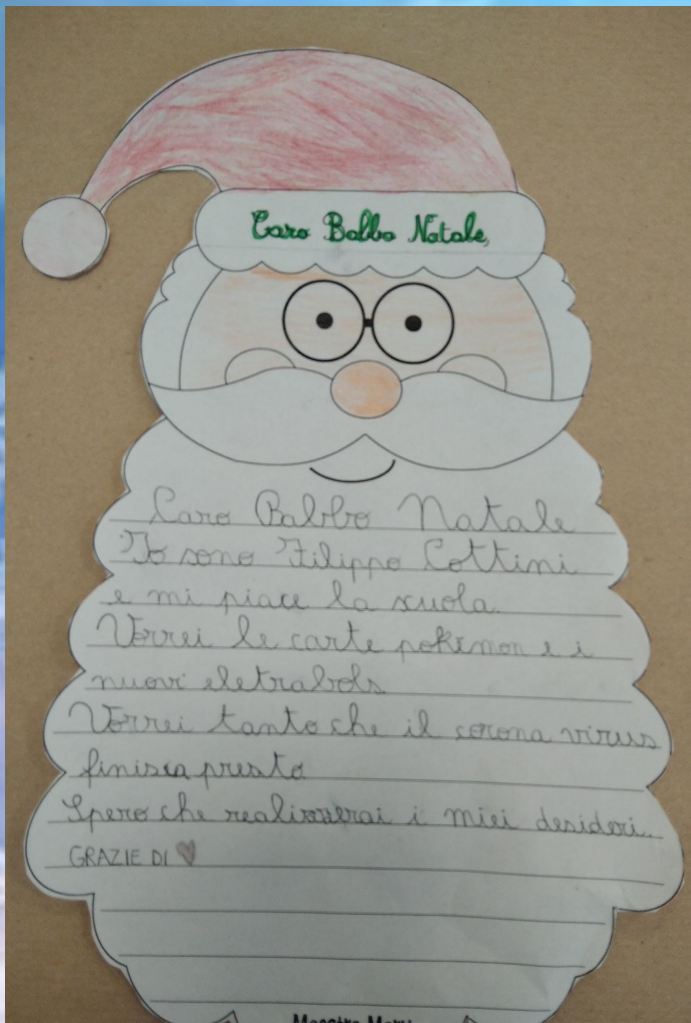 Caro Babbo Natale,
Caro Babbo Natale
Io sono Filippo Cottini
e mi piace la scuola.
Vorrei le carte pokemon e i
nuovi eletrabols
Vorrei tanto che il corona virus
finisca presto
Spero che realizzerai i miei desideri.
GRAZIE DI